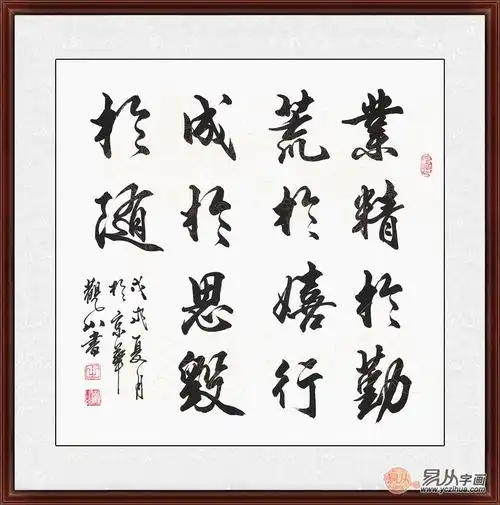 業精於勤
荒於嬉行
成於思毀
於随
戊戌夏月
於京華
觀山書
易从字画
www.yczihua.com